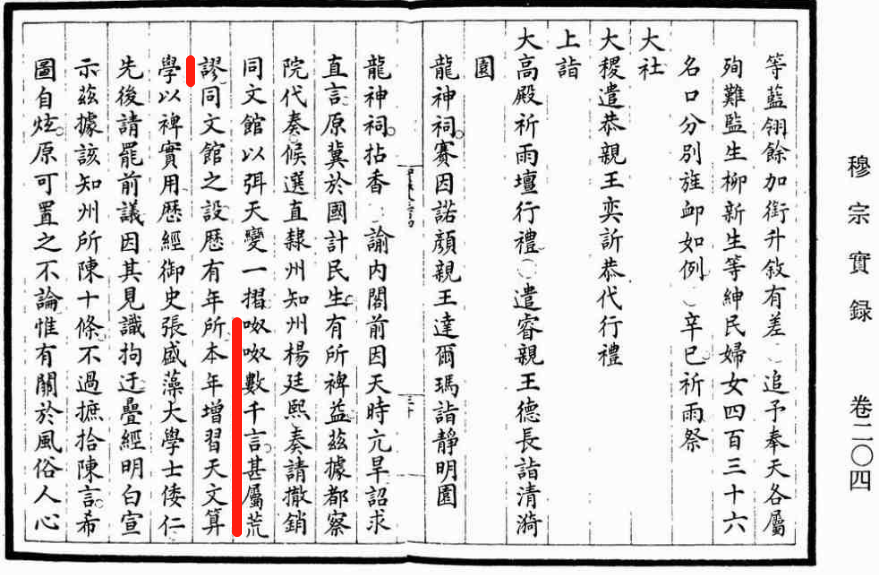 穆宗實録 卷二〇四
等藍翎餘加銜升敘有差○追予奉天各屬
殉難監生柳新生等紳民婦女四百三十六
名口分別旌卹如例○辛巳祈雨祭
大社
大稷遣恭親王奕訢恭代行禮
上詣
大高殿祈雨壇行禮○遣睿親王德長詣清漪
園
龍神祠。賽因諾顏親王達爾瑪詣靜明園
龍神祠。拈香○諭內閣前因天時亢旱詔求
直言原冀於國計民生有所裨益。茲據都察
院代奏候選直隸州知州楊廷熙奏請撤銷
同文館以弭天變一摺呶呶數千言。甚屬荒
謬同文館之設歷有年所本年增習天文算
學以裨實用歷經御史張盛藻大學士倭仁
先後請罷前議因其見識拘迂疊經明白宣
示茲據該知州所陳十條。不過摭拾陳言。希
圖自炫。原可置之不論惟有關於風俗人心